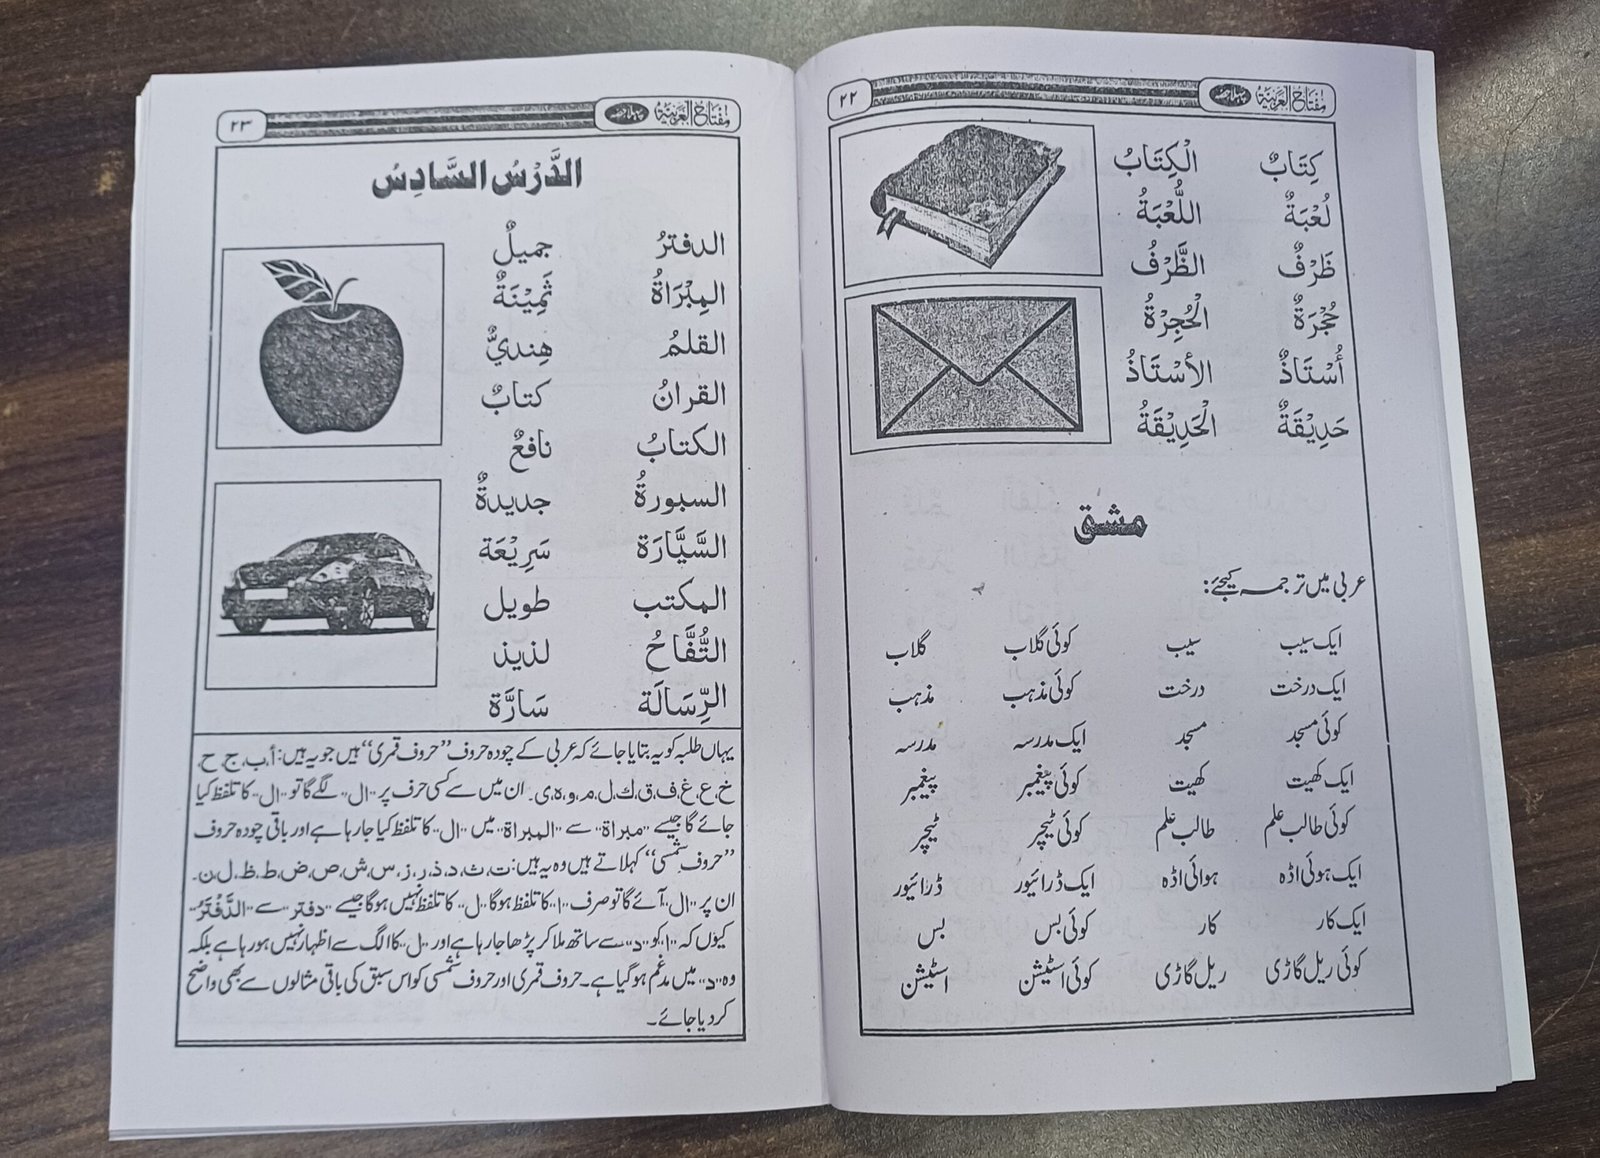 مفتاح العربیة پہلا حصہ ۲۲
كِتَابٌ الْكِتَابُ
لُعْبَةٌ اللُّعْبَةُ
ظَرْفٌ الظَّرْفُ
حُجْرَةٌ الْحُجِرْةُ
أُسْتَاذٌ الأسْتَاذُ
حَدِيْقَةٌ الْحَدِيْقَةُ
مشق
عربی میں ترجمہ کیجئے:
ایک سیب سیب کوئی گلاب گلاب
ایک درخت درخت کوئی مذہب مذہب
کوئی مسجد مسجد ایک مدرسہ مدرسہ
ایک کھیت کھیت کوئی پیغمبر پیغمبر
کوئی طالب علم طالب علم کوئی ٹیچر ٹیچر
ایک ہوئی اڈہ ہوائی اڈہ ایک ڈرائیور ڈرائیور
ایک کار کار کوئی بس بس
کوئی ریل گاڑی ریل گاڑی کوئی اسٹیشن اسٹیشن
مفتاح العربیة پہلا حصہ ۲۳
الدَّرْسُ السَّادِسُ
الدفترُ جميلٌ
المِبْرَاةُ ثَمِيْنَةٌ
القلمُ هِنديٌّ
القرانُ كتابٌ
الكتابُ نافعٌ
السبورةُ جديدةٌ
السَّيَّارَة سَرِيْعَة
المكتب طويل
التُّفَّاحُ لذيذ
الرِّسَالَة سَارَّة
یہاں طلبہ کو یہ بتایا جائے کہ عربی کے چودہ حروف ”حروف قمری“ ہیں جو یہ ہیں: أ، ب، ج، ح،
خ، ع، غ، ف، ق، ك، ل، م، و، ہ، ی۔ ان میں سے کسی حرف پر ”ال“ لگے گا تو ”ال“ کا تلفظ کیا
جائے گا جیسے ”مبراة“ سے ”المبراة“ میں ”ال“ کا تلفظ کیا جا رہا ہے اور باقی چودہ حروف
”حروفِ شمسی“ کہلاتے ہیں وہ یہ ہیں: ت، ث، د، ذ، ر، ز، س، ش، ص، ض، ط، ظ، ل، ن۔
ان پر ”ال“ آئے گا تو صرف ”ا“ کا تلفظ ہوگا ”ل“ کا تلفظ نہیں ہوگا جیسے ”دفتر“ سے ”الدَّفْتَرُ“
کیوں کہ ”ا“ کو ”د“ سے ساتھ ملا کر پڑھا جا رہا ہے اور ”ل“ کا الگ سے اظہار نہیں ہو رہا ہے بلکہ
وہ ”د“ میں مدغم ہو گیا ہے۔ حروف قمری اور حروف شمسی کو اس سبق کی باقی مثالوں سے بھی واضح
کر دیا جائے۔